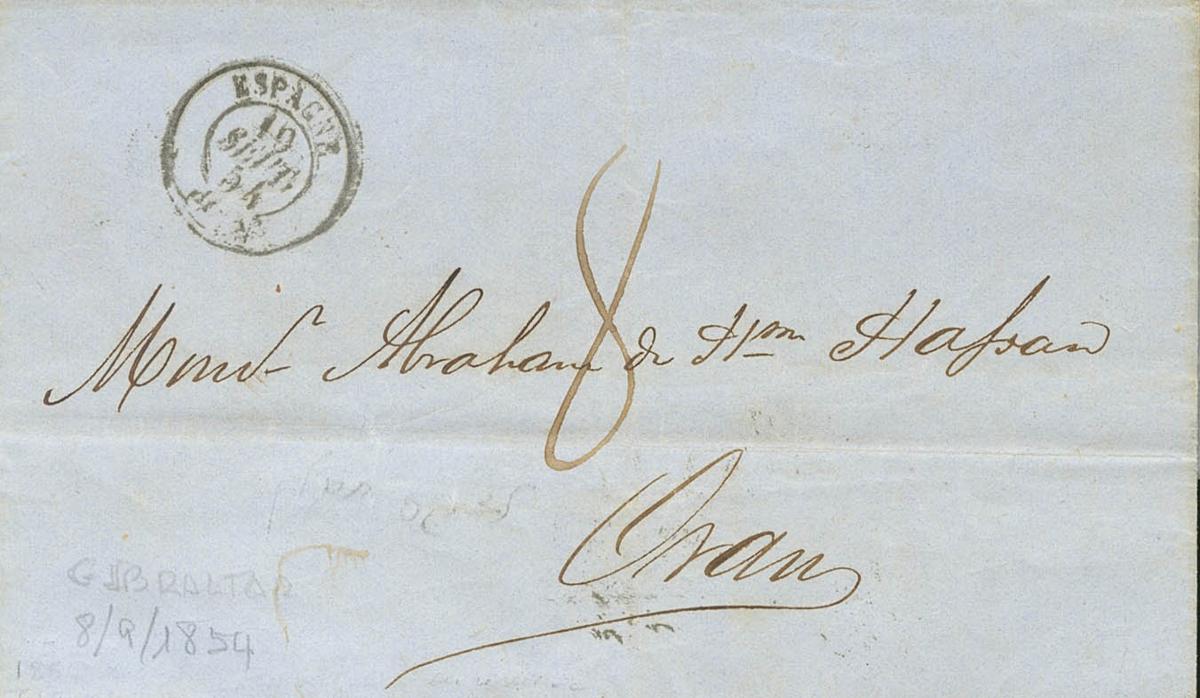 ESPAGNE
10
SEPT.
54
8
Monsr. Abraham de Hm Hassan
Oran
GIBRALTAR
8/9/1854